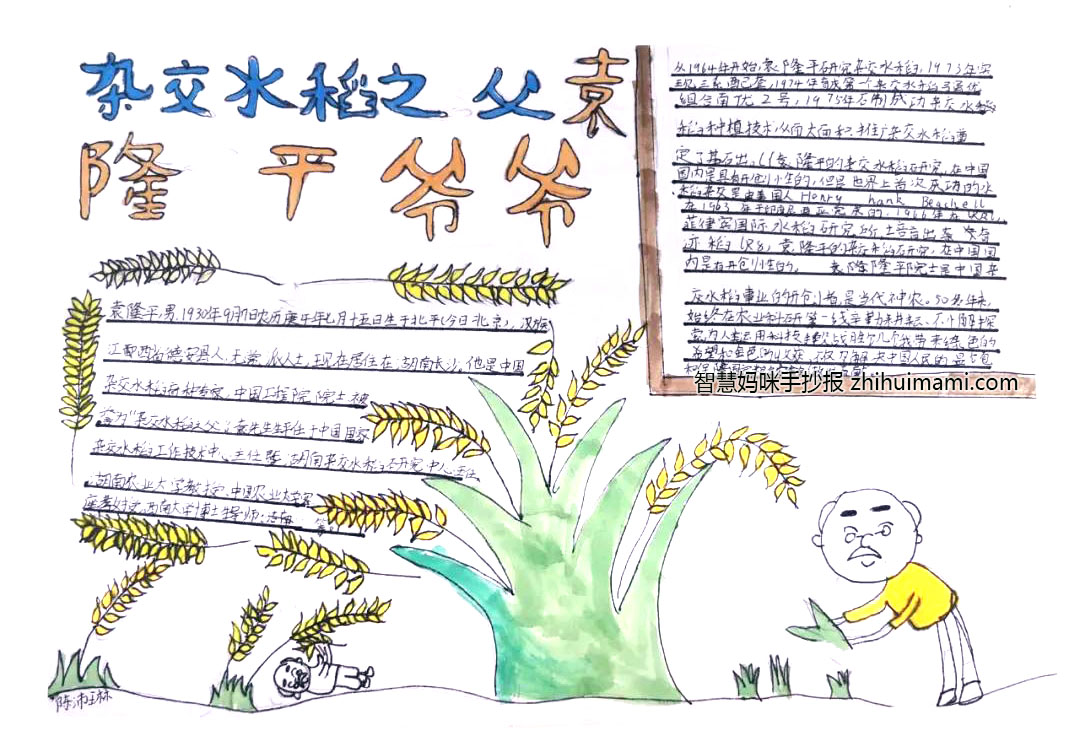 杂交水稻之父袁
隆平爷爷
袁隆平,男,1930年9月7日农历庚午年七月十五日生于北平(今日北京),汉族
江西省德安县人,无党派人士,现在居住在湖南长沙,他是中国
杂交水稻育种专家,中国工程院院士被
誉为"杂交水稻之父",袁先生任中国国家
杂交水稻工作技术中心主任暨湖南杂交水稻研究中心主任
湖南农业大学教授,中国农业大学客
座教授,西南大学博士导师,
从1964年开始,袁隆平研究杂交水稻,1973年实
现三系配套,1974年育成第一个杂交水稻强优
组合南优2号,1975年研制成功杂交水稻
稻种植技术从而大面积推广杂交水稻奠
定了基石出。袁隆平的杂交水稻研究,在中国
国内是具有开创性的,但是世界上首次成功的水
稻杂交是由美国人Henry hank Beachell
在1963年于印度尼西亚完成的,1966年在IRRI,
菲律宾国际水稻研究所培育出奇
迹稻IR8,袁隆平的杂交水稻研究在中国国
内是有开创性的。 袁隆平院士是中国杂
交水稻事业的开创者,是当代神农。50多年来,
始终在农业科研第一线辛勤耕耘、不懈探
索,为人类运用科技战胜饥饿带来绿色的
希望和金色的收获,不仅为解决中国人民的温饱
智慧妈咪手抄报 zhihuimami.com
陈沛琳